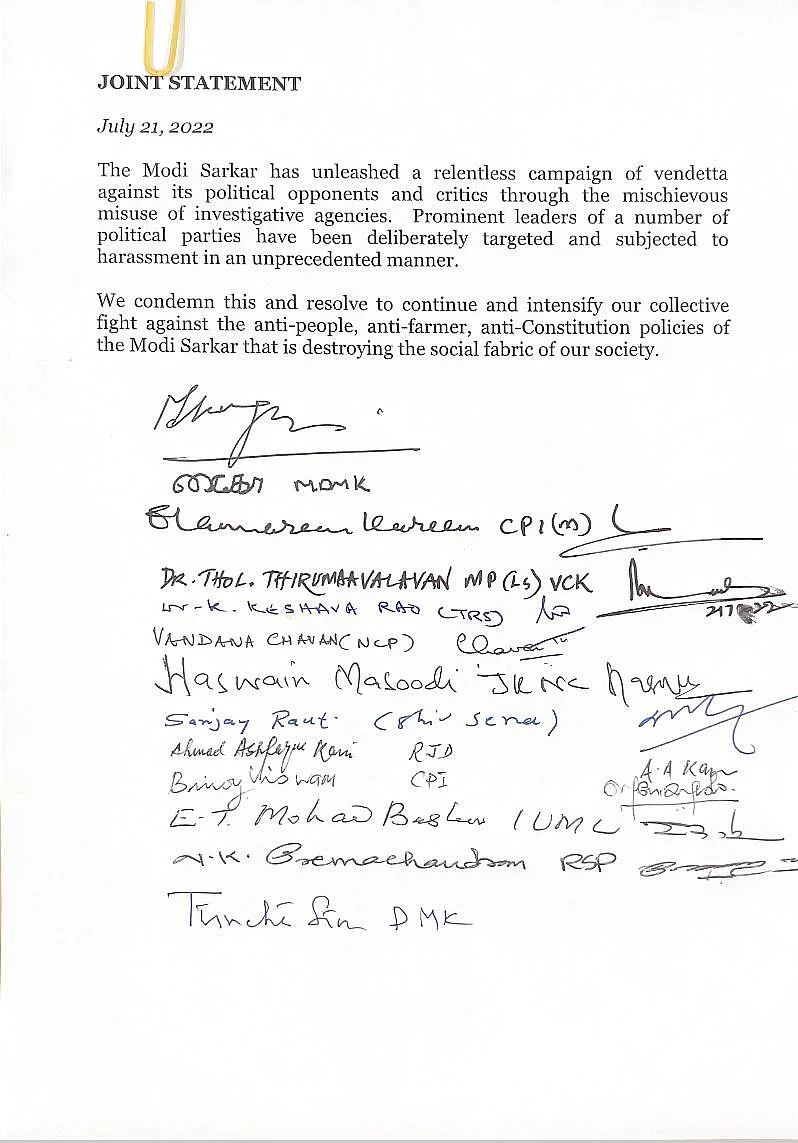 JOINT STATEMENT
July 21, 2022
The Modi Sarkar has unleashed a relentless campaign of vendetta
against its political opponents and critics through the mischievous
misuse of investigative agencies. Prominent leaders of a number of
political parties have been deliberately targeted and subjected to
harassment in an unprecedented manner.
We condemn this and resolve to continue and intensify our collective
fight against the anti-people, anti-farmer, anti-Constitution policies of
the Modi Sarkar that is destroying the social fabric of our society.
MDMK
Elamaram Kareem CPI(M)
DR. THOL. THIRUMAAVALAVAN MP (LS) VCK
K. KESHAVA RAO (TRS)
VANDANA CHAVAN (NCP) Chavan
Hasnain Masoodi JKNC
Sanjay Raut (Shiv Sena)
Ahmad Ashfaque Karim RJD
Binoy Viswam CPI
E.T. Mohad Basheer IUML
N.K. Premachandran RSP
Tiruchi Siva DMK